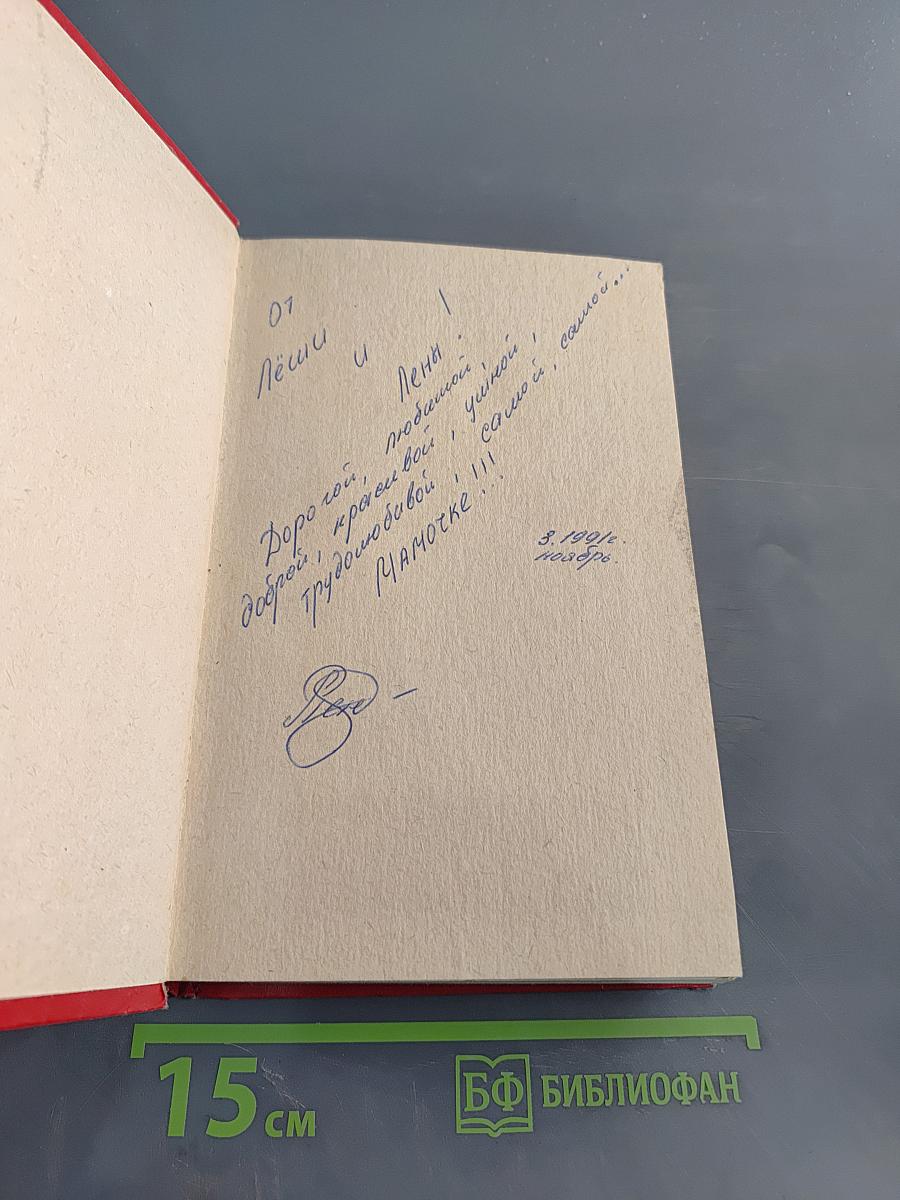 От
Лёши и Лены!
Дорогой, любимой,
доброй, красивой, умной,
трудолюбивой, самой, самой...
Мамочке...!!!
3.1991г.
ноябрь.
15 см
БФ БИБЛИОФАН